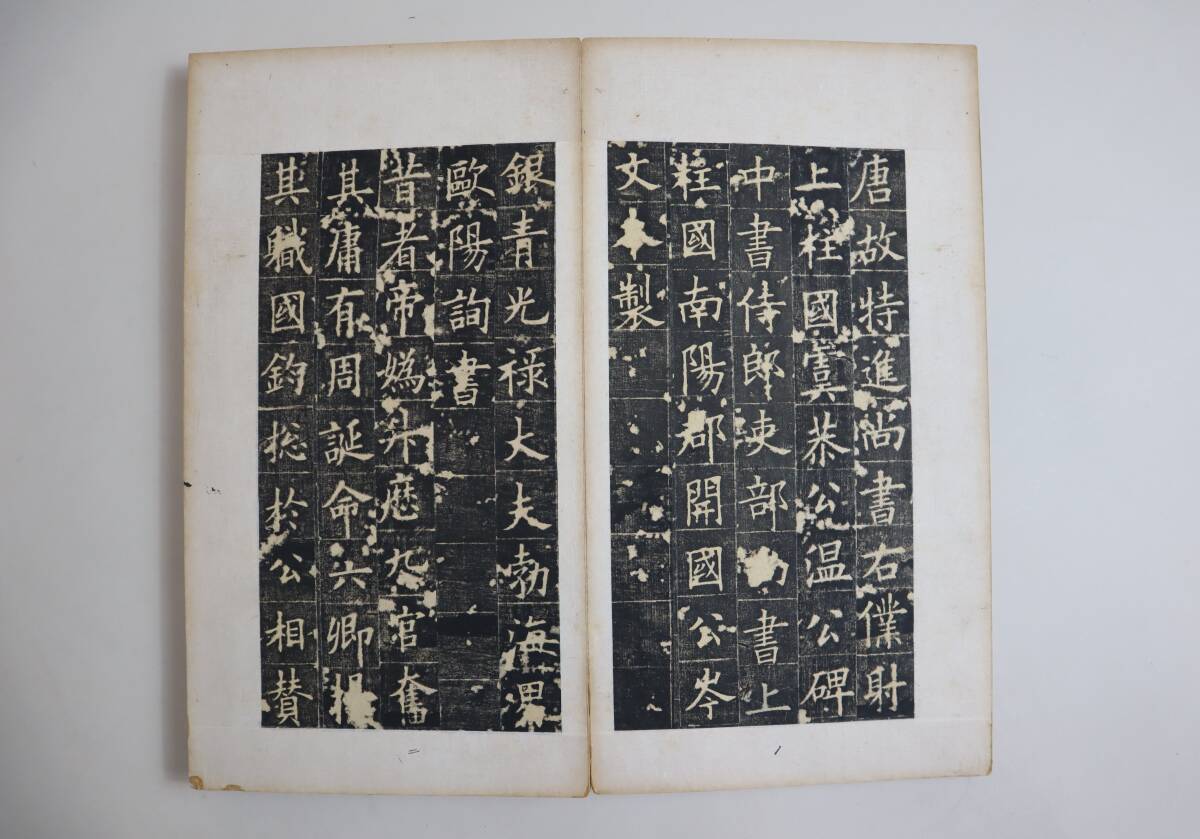 唐故特進尚書右僕射
上柱國虞恭公温公碑
中書侍郎吏部書上
柱國南陽郡開國公岑
文本製
一
銀青光禄大夫勃海男
歐陽詢書
昔者帝媯升歷九官奮
其庸有周誕命六卿揚
其職國鈞揔於公相賛
二